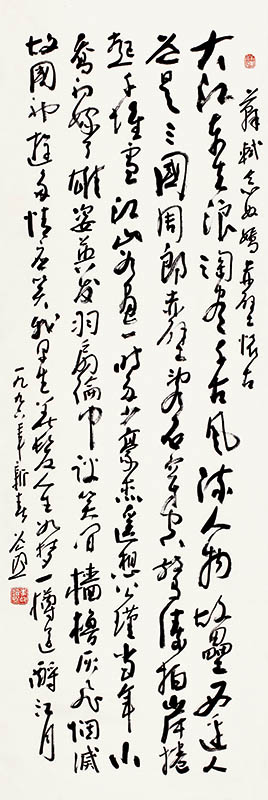 蘇軾念奴嬌赤壁懷古
大江東去浪淘盡千古風流人物故壘西邊人
道是三國周郎赤壁亂石穿空驚濤拍岸捲
起千堆雪江山如畫一時多少豪杰遙想公瑾當年小
喬初嫁了雄姿英發羽扇綸巾談笑間檣櫓灰飛烟滅
故國神遊多情應笑我早生華髮人生如夢一樽還酹江月
一九九六年新春